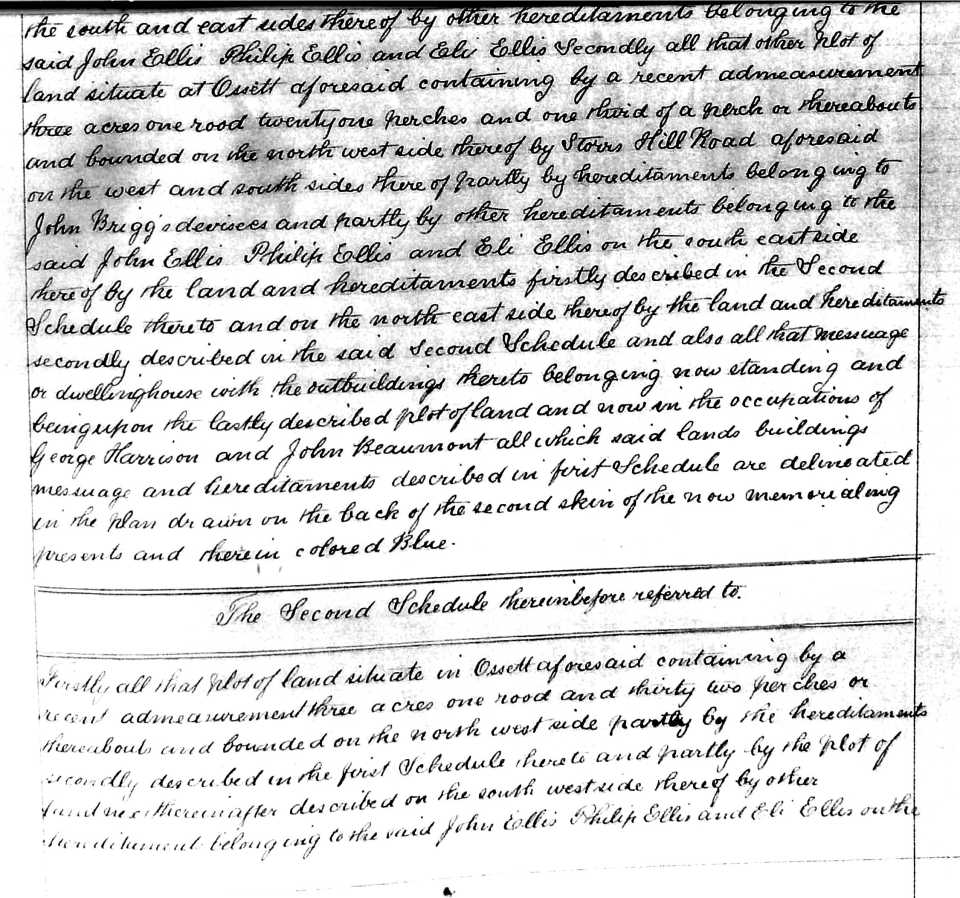 the south and east sides thereof by other hereditaments belonging to the
said John Ellis Philip Ellis and Eli Ellis Secondly all that other plot of
land situate at Ossett aforesaid containing by a recent admeasurement
three acres one rood twenty one perches and one third of a perch or thereabouts
and bounded on the north west side thereof by Storrs Hill Road aforesaid
on the west and south sides thereof partly by hereditaments belonging to
John Brigg's devisees and partly by other hereditaments belonging to the
said John Ellis Philip Ellis and Eli Ellis on the south east side
thereof by the land and hereditaments firstly described in the Second
Schedule thereto and on the north east side thereof by the land and hereditaments
secondly described in the said Second Schedule and also all that messuage
or dwellinghouse with the outbuildings thereto belonging now standing and
being upon the lastly described plot of land and now in the occupations of
George Harrison and John Beaumont all which said lands buildings
messuage and hereditaments described in first Schedule are delineated
in the plan drawn on the back of the second skin of the now memorialing
presents and therein colored Blue.
The Second Schedule thereinbefore referred to.
Firstly all that plot of land situate in Ossett aforesaid containing by a
recent admeasurement three acres one rood and thirty two perches or
thereabouts and bounded on the north west side partly by the hereditaments
secondly described in the first Schedule thereto and partly by the plot of
land next thereinafter described on the south west side thereof by other
hereditament belonging to the said John Ellis Philip Ellis and Eli Ellis on the